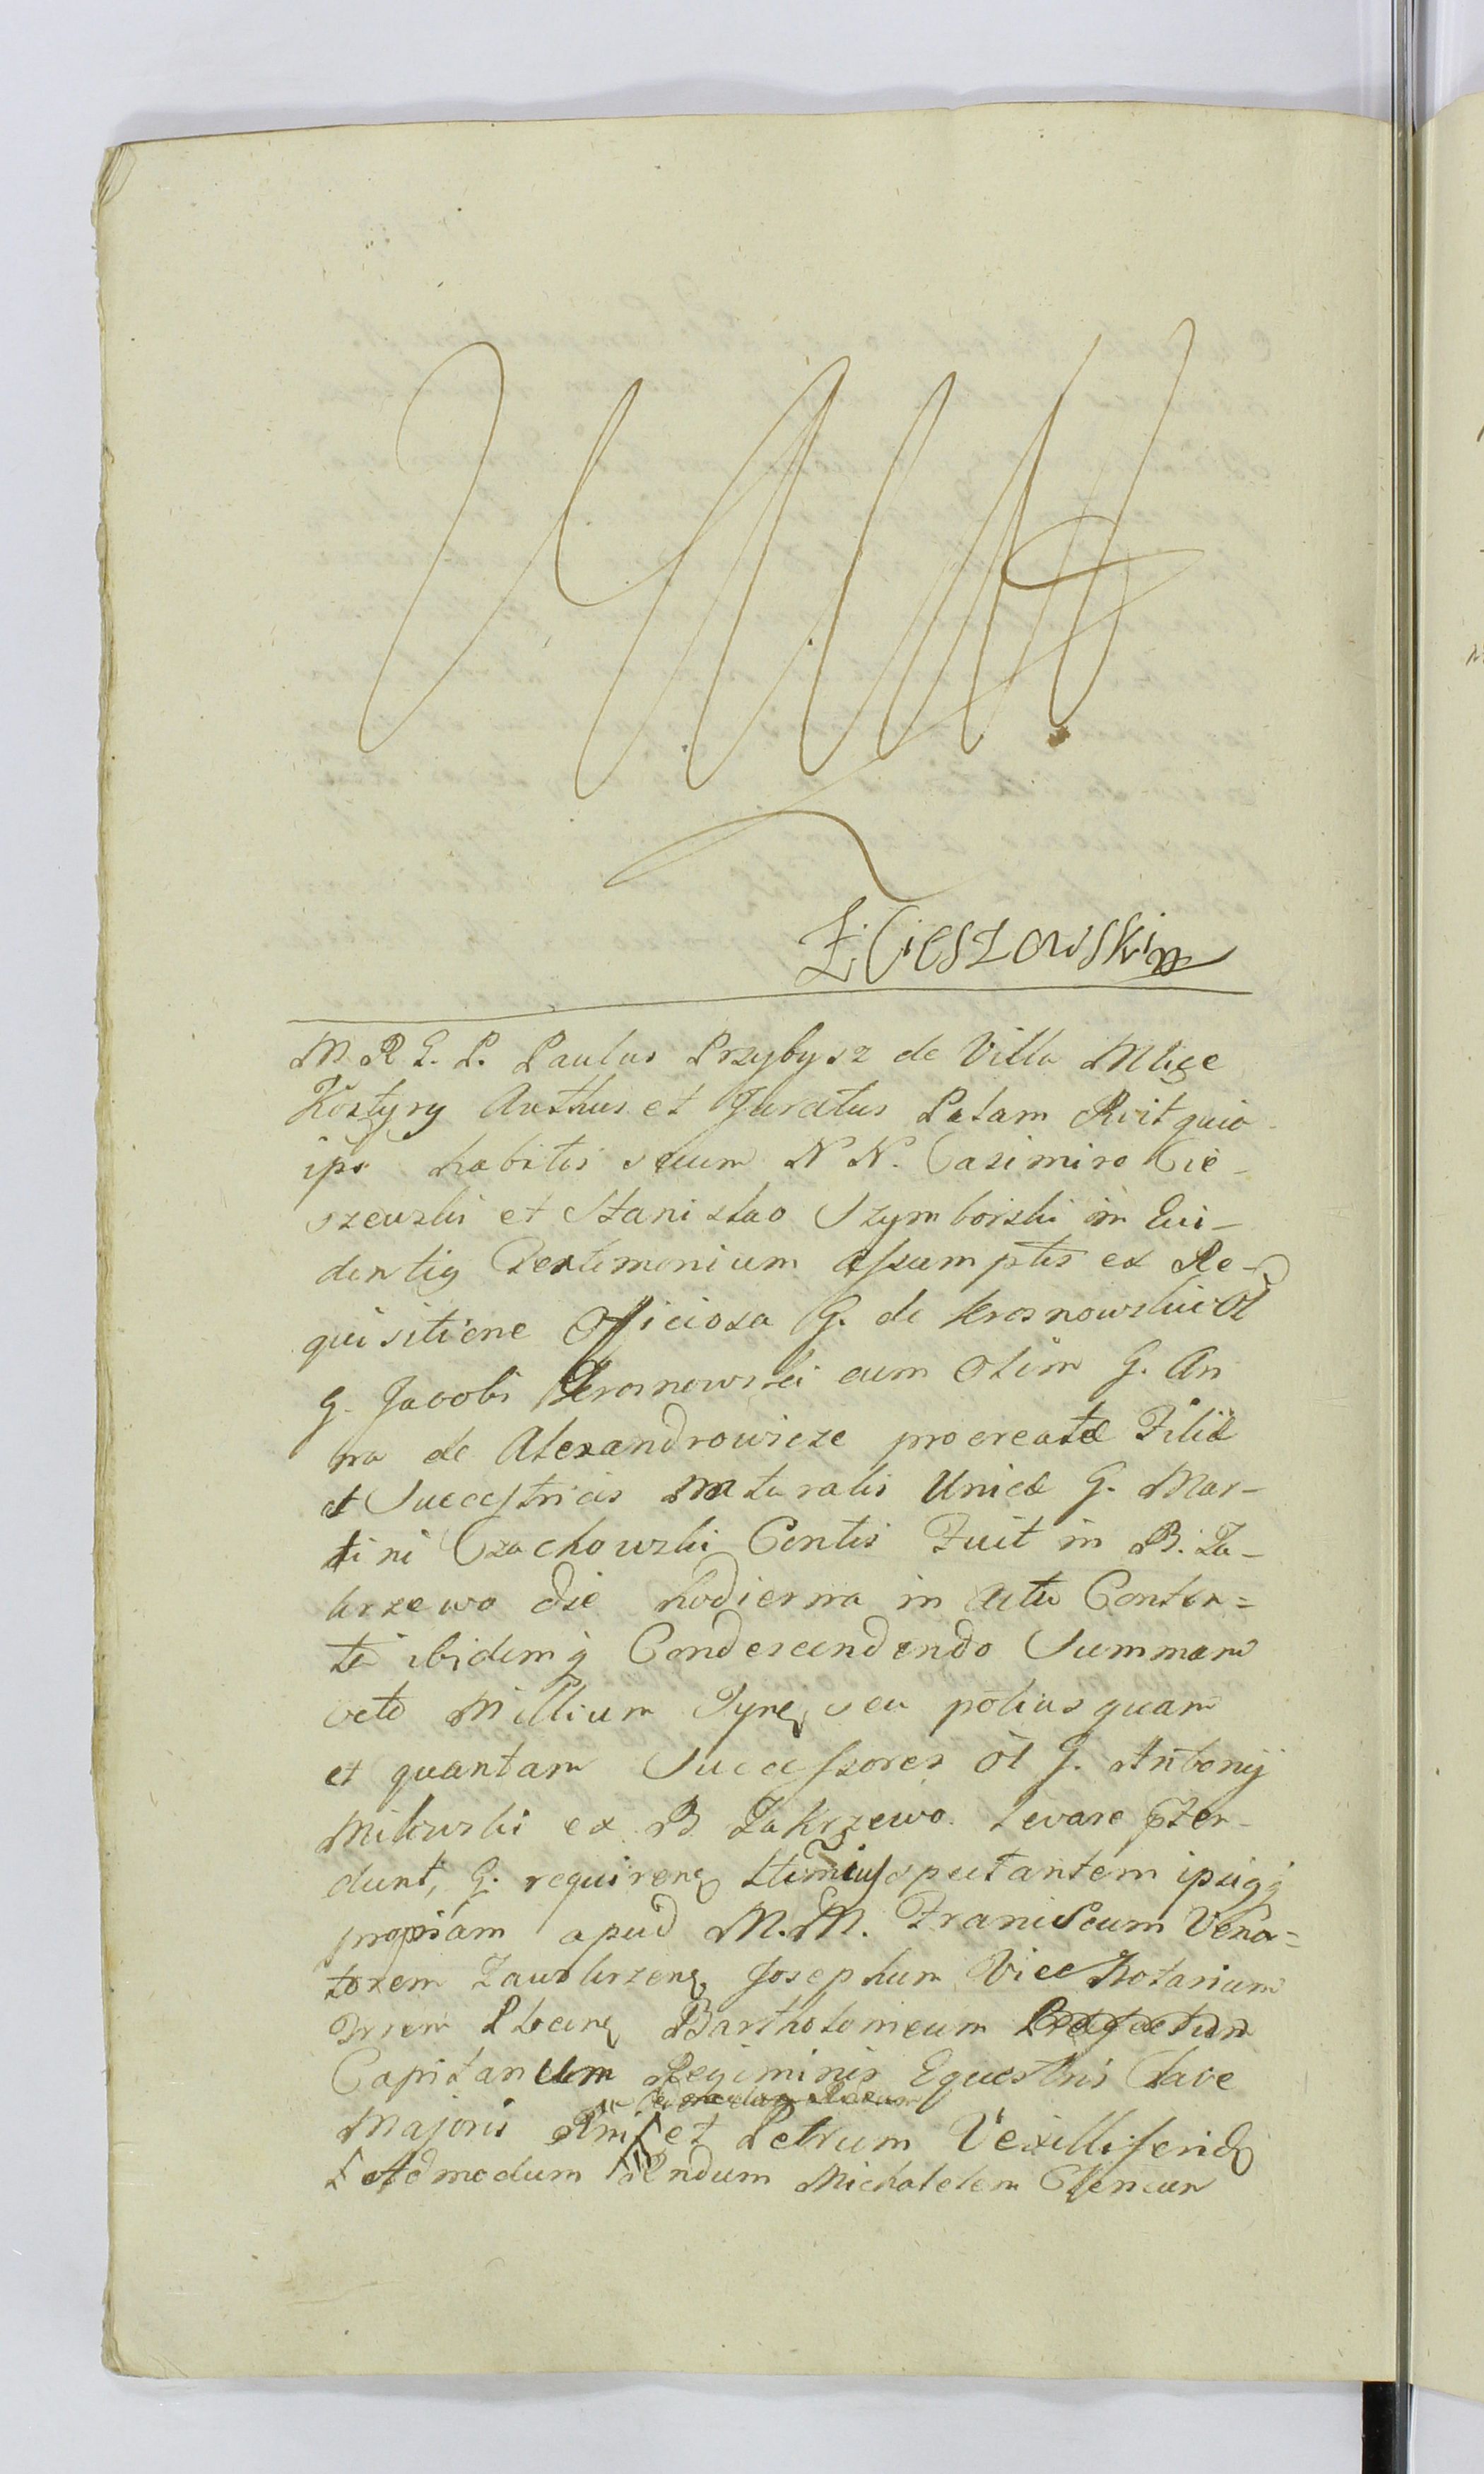 Z Cieszowski mp
M. R G. P. Paulus Przybysz de Villa Mlice
Kostyry Authus et Juratus Palam Rvit quia
ips habitis secum N N. Casimiro Cie-
szewski et Stanislao Szymborski in Evi-
dentiq Testimonium assumptis ex Re-
quisitione Officiosa G. de Krosnowskie Ol
G. Jacobi Krosnowski cum Olim G. An
na de Alexandrowicze procreatæ Filiæ
et Successtricis naturalis Unicæ G. Mar-
tini Czachowski Contis Fuit in B. Za-
krzewo die hodierna in actu Conten=
ti ibidemq Condescendendo Summam
octo Millium Tynf, seu potius quam
et quantam Successores ol G. Antonij
Milewski ex B Zakrzewo Levare
dunt, G. requirenq spectantem ipsiqq
propriam apud M. M. Franciscum Vena=
torem Zawskrzenq, Josephum Vice Notarium
Trrem Plocenq Bartholomeum
Capitaneum Regiminis Equestris Clavæ
Majoris Rni et Petrum Vexilliferid
Admodum Rndum Michaelem